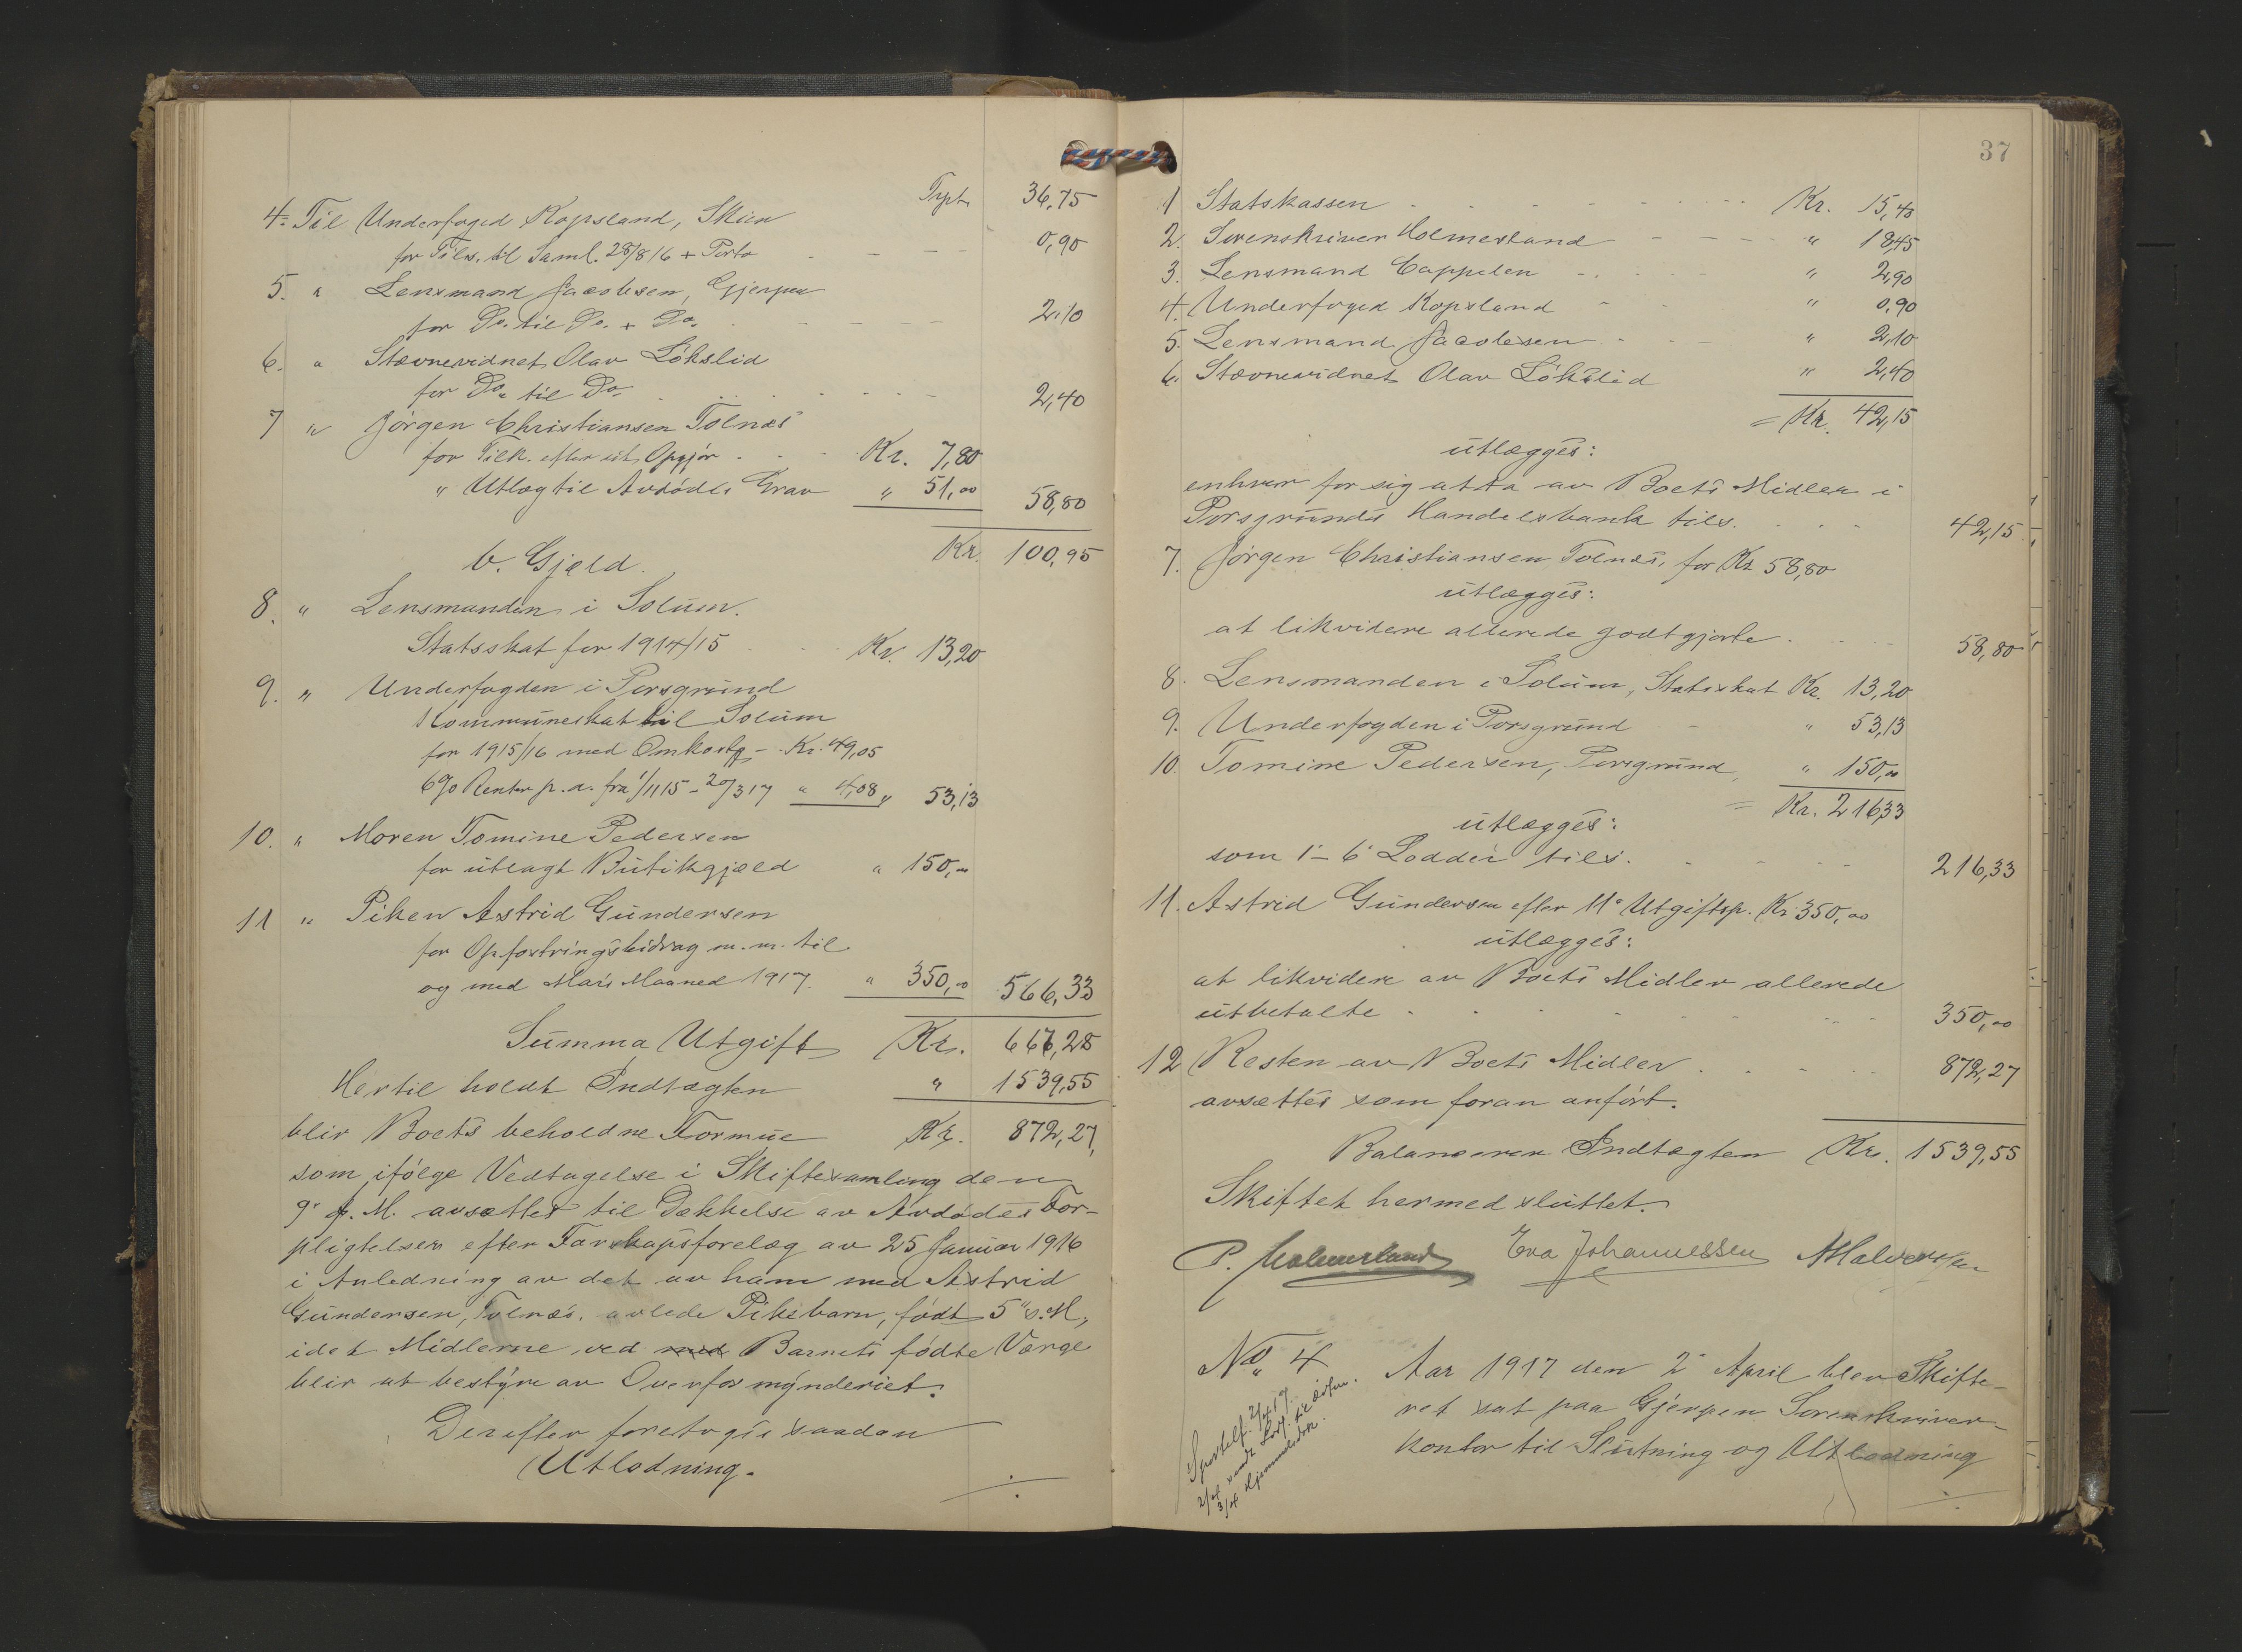 Trpt. 36,75
4. Til Underfoged Kopsland, Skien
for Tilks. til Saml. 28/8 16 + Porto - - - 0,90
5. " Lensmand Jacobsen, Gjerpen
for Do. til Do. + Do. - - - 2,10
6. " Stævnevidnet Olav Lökslid
for Do. til Do. - - - 2,40
7 " Jörgen Christiansen Tolnæs
for Tilk. efter Opgjör . . Kr. 7,80
" Utlæg til Avdödes Grav " 51,00 58,80
Kr. 100,95
b. Gjæld.
8. " Lensmanden i Solum.
Statsskat for 1914/15 . . Kr. 13,20
9. " Underfogden i Porsgrund
Kommuneskat til Solum
for 1915/16 med Omkostg. - Kr. 49,05
6% Renter p. a. fra 1/11 15 - 20/3 17 " 4,08 " 53,13
10. " Moren Tomine Pedersen
for utlagt Butikgjæld " 150,00
11 " Piken Astrid Gundersen
for Opfostringsbidrag m. m. til
og med Mars Maaned 1917. " 350,00 566,33
Summa Utgift Kr. 667,28
Hertil holdt Indtægten " 1539,55
blir Boets beholdne Formue Kr. 872,27,
som ifölge Vedtagelse i Skiftesamling den
9' f. M. avsættes til Dækkelse av Avdödes For-
pligtelser efter Farskapsforelæg av 25 Januar 1916
i Anledning av det av ham med Astrid
Gundersen, Tolnæs, avlede Pikebarn, födt 5" s. M,
idet Midlerne ved med Barnets födte Værge
blir at bestyre av Overformynderiet.
Derefter foretoges saadan
Utlodning.
37
1 Statskassen - - - Kr. 15,40
2. Sorenskriver Holmesland - - - " 18,45
3. Lensmand Cappelen - - " 2,90
4. Underfoged Kopsland - - " 0,90
5. Lensmand Jacobsen - - " 2,10
6. Stævnevidnet Olav Lökslid " 2,40
= Kr. 42,15
utlægges:
enhver for sig at ta av Boets Midler i
Porsgrunds Handelsbank tils. . . . 42,15
7. Jörgen Christiansen Tolnæs, for Kr. 58,80
utlægges:
at likvidere allerede godtgjorte . . . 58,80
8. Lensmanden i Solum, Statsskat Kr. 13,20
9. Underfogden i Porsgrund - " 53,13
10. Tomine Pedersen, Porsgrund, " 150,00
= Kr. 216,33
utlægges:
som 1'-6' Lodder tils. - - - 216,33
11. Astrid Gundersen efter 11' Utgiftsp. Kr. 350,00
utlægges:
at likvidere av Boets Midler allerede
utbetalte - - - 350,00
12 Resten av Boets Midler . . . 872,27
avsættes som foran anfört.
Balancerer Indtægten Kr. 1539,55
Skiftet hermed sluttet.
P. Holmesland Eva Johannessen
No. 4 Aar 1917 den 2' April blev Skifte-
ret sat paa Gjerpen Sorenskriver-
kontor til Slutning og Utlodning